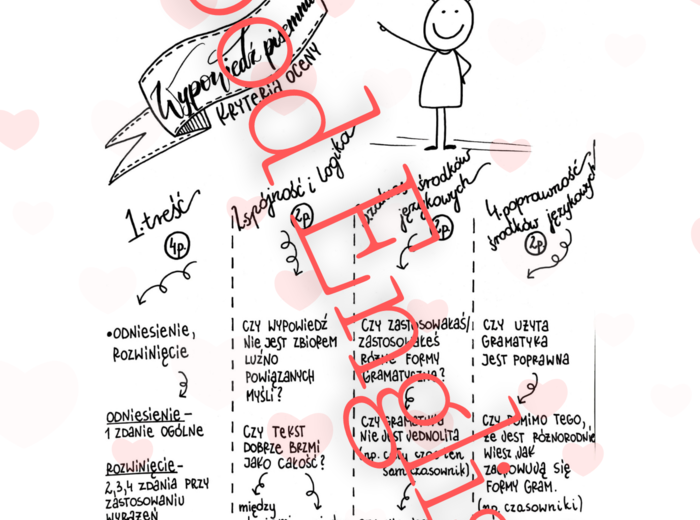 Wypowiedź pisemna
KRYTERIA OCENY
1.treść
4p.
2.spójność i logika
2p.
środków
językowych
2p.
4.poprawność
środków językowych
2p.
•ODNIESIENIE,
ROZWINIĘCIE
ODNIESIENIE-
1 ZDANIE OGÓLNE
ROZWINIĘCIE-
2,3,4 ZDANIA PRZY
ZASTOSOWANIU
WYRAŻEŃ
CZY WYPOWIEDŹ
NIE JEST ZBIOREM
LUŹNO
POWIĄZANYCH
MYŚLI?
CZY TEKST
DOBRZE BRZMI
JAKO CAŁOŚĆ?
między
CZY ZASTOSOWAŁAŚ/
ZASTOSOWAŁEŚ
RÓŻNE FORMY
GRAMATYCZNE?
CZY GRAMATYKA
NIE JEST JEDNOLITA
(np. cały czas ten
sam czasownik)
CZY UŻYTA
GRAMATYKA
JEST POPRAWNA
CZY POMIMO TEGO,
że JEST RÓŻNORODNIE
WIESZ JAK
ZACHOWUJĄ SIĘ
FORMY GRAM.
(np. czasowniki)